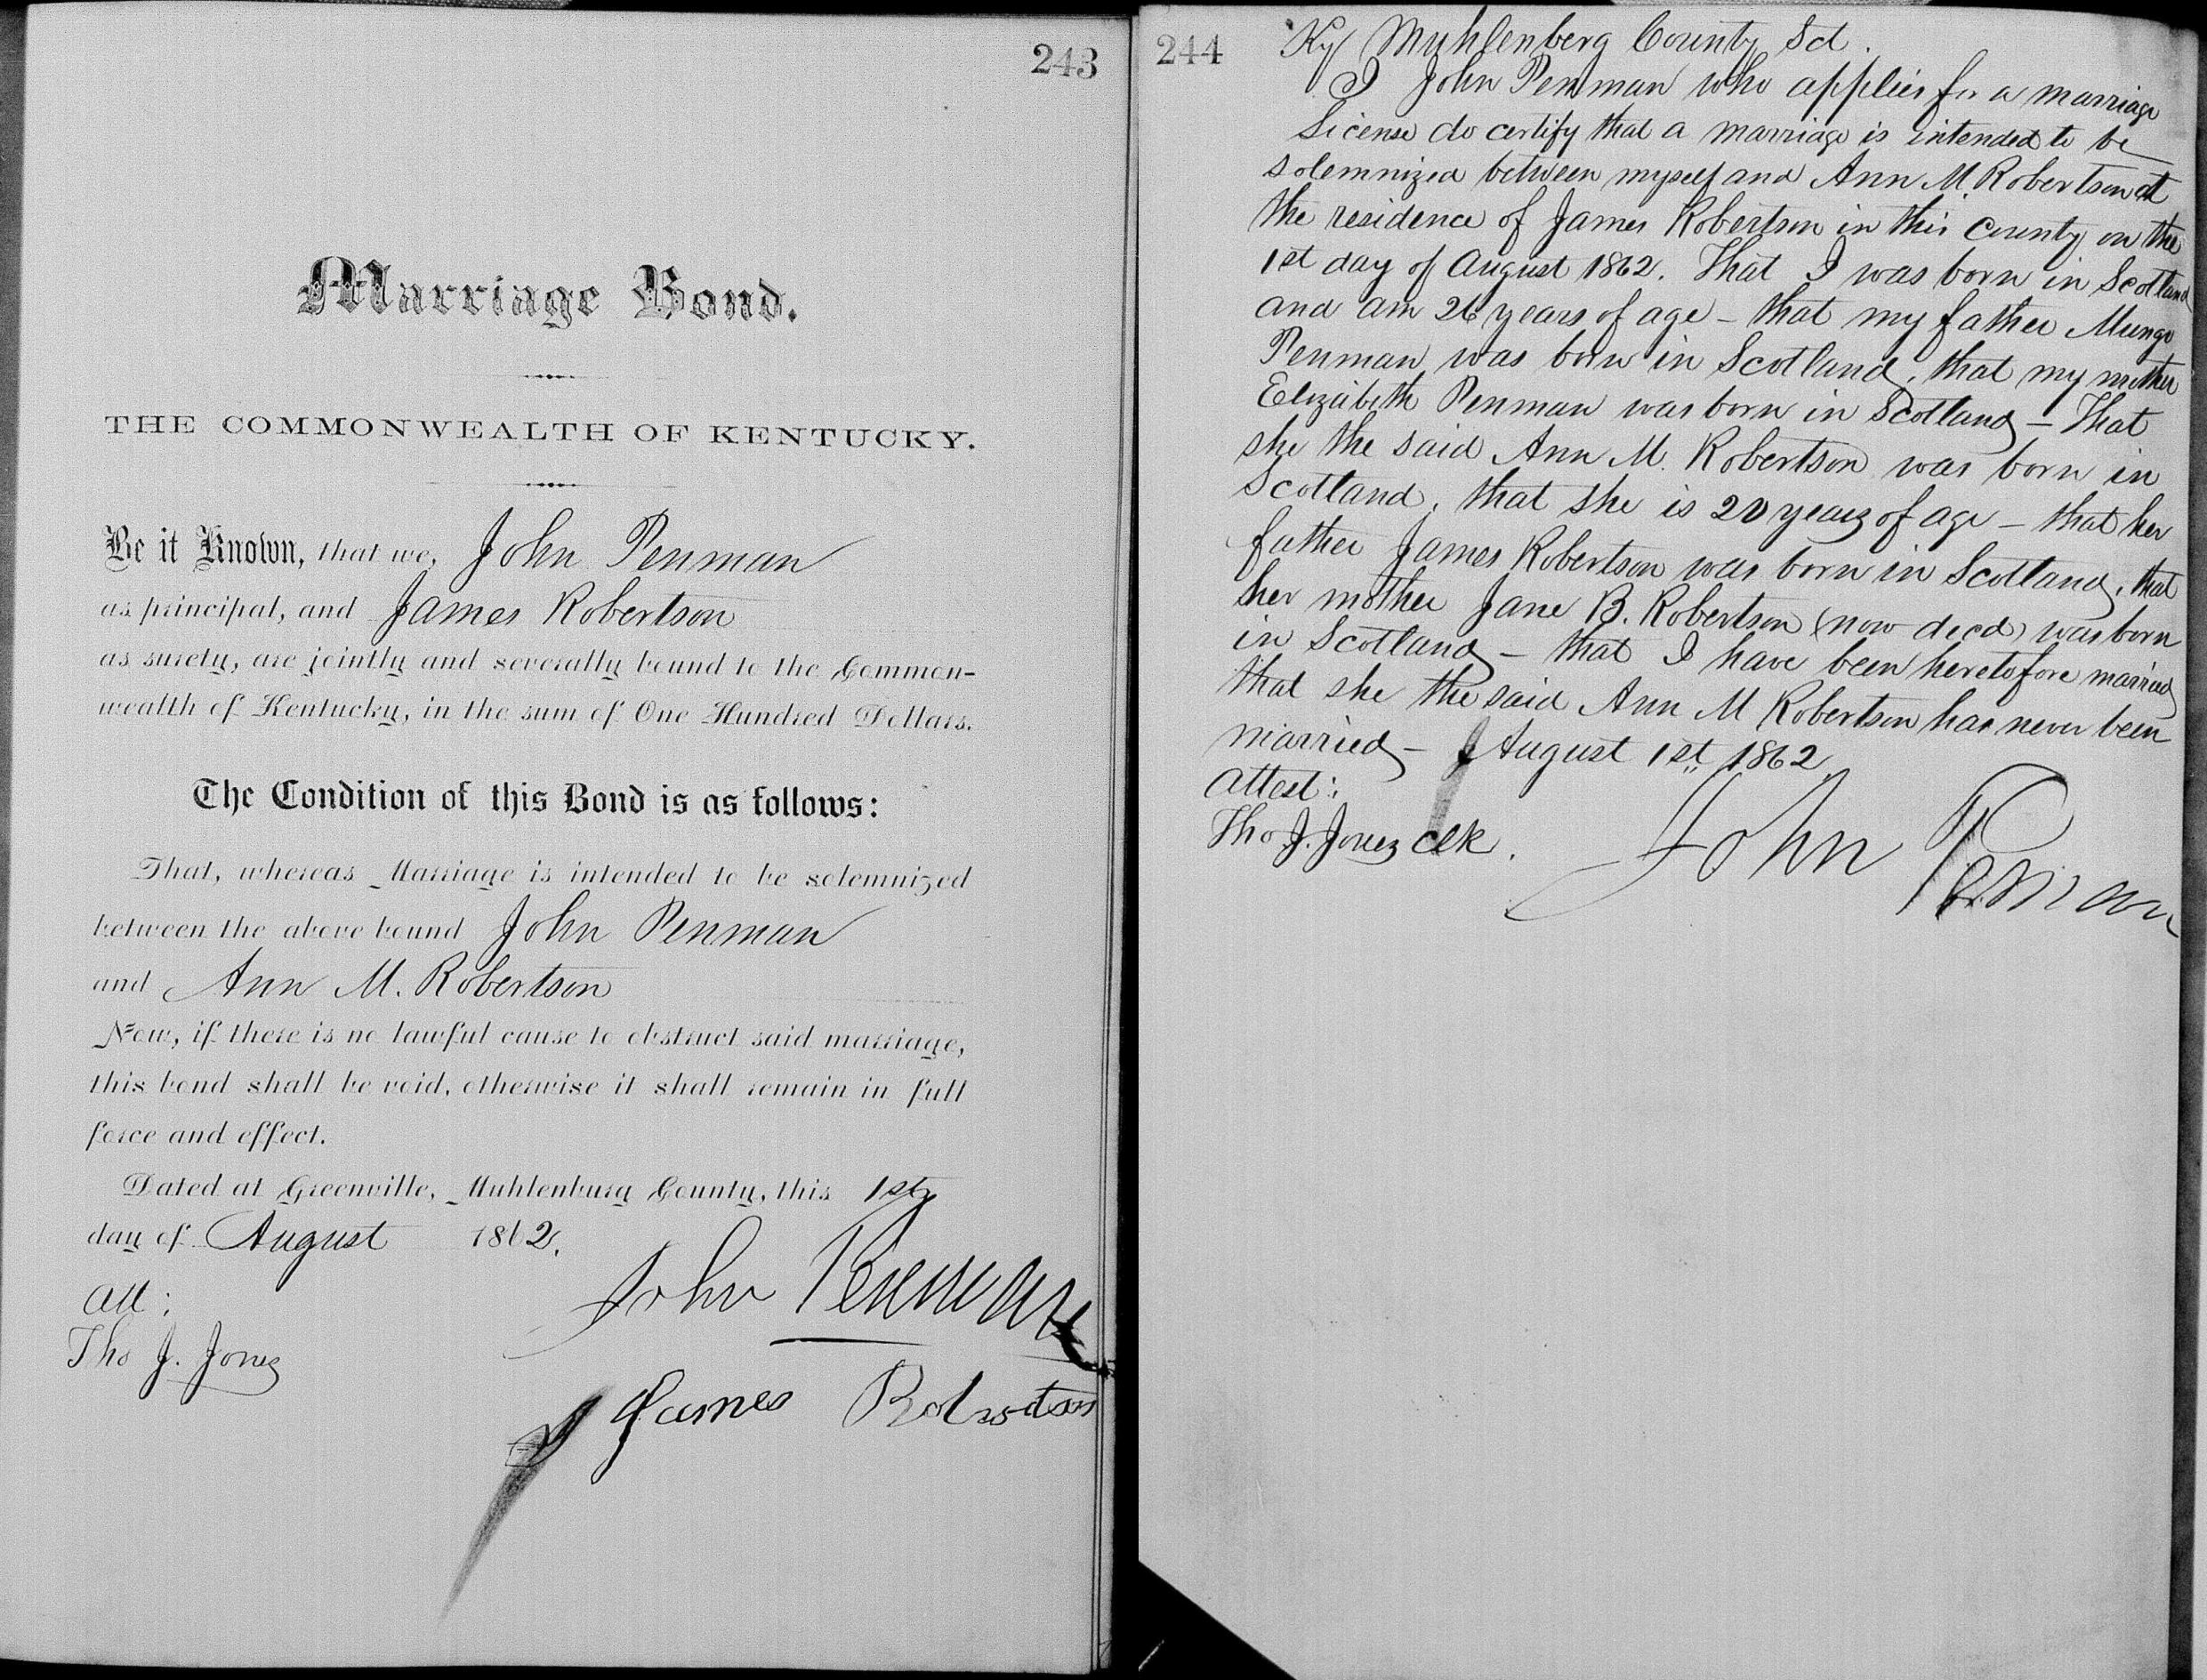 243
Marriage Bond.
THE COMMONWEALTH OF KENTUCKY.
Be it Known, that we, John Penman
as principal, and James Robertson
as surety, are jointly and severally bound to the Common-
wealth of Kentucky, in the sum of One Hundred Dollars.
The Condition of this Bond is as follows:
That, whereas Marriage is intended to be solemnized
between the above bound John Penman
and Ann M. Robertson
Now, if there is no lawful cause to obstruct said marriage,
this bond shall be void, otherwise it shall remain in full
force and effect.
Dated at Greenville, Muhlenburg County, this 1st
day of August 1862.
Att:
Tho J. Jones
John Penman
James Robertson
244
Ky Muhlenberg County Sct.
I John Penman who applies for a marriage
License do certify that a marriage is intended to be
solemnized between myself and Ann M. Robertson at
the residence of James Robertson in this County on the
1st day of August 1862. That I was born in Scotland
and am 26 years of age – that my father Mungo
Penman was born in Scotland, that my mother
Elizabeth Penman was born in Scotland – That
she the said Ann M. Robertson was born in
Scotland, that she is 20 years of age – that her
father James Robertson was born in Scotland, that
her mother Jane B. Robertson (now decd) was born
in Scotland – that I have been heretofore married
that she the said Ann M Robertson has never been
married – August 1st 1862
Attest:
Tho J. Jones Clk.
John Penman